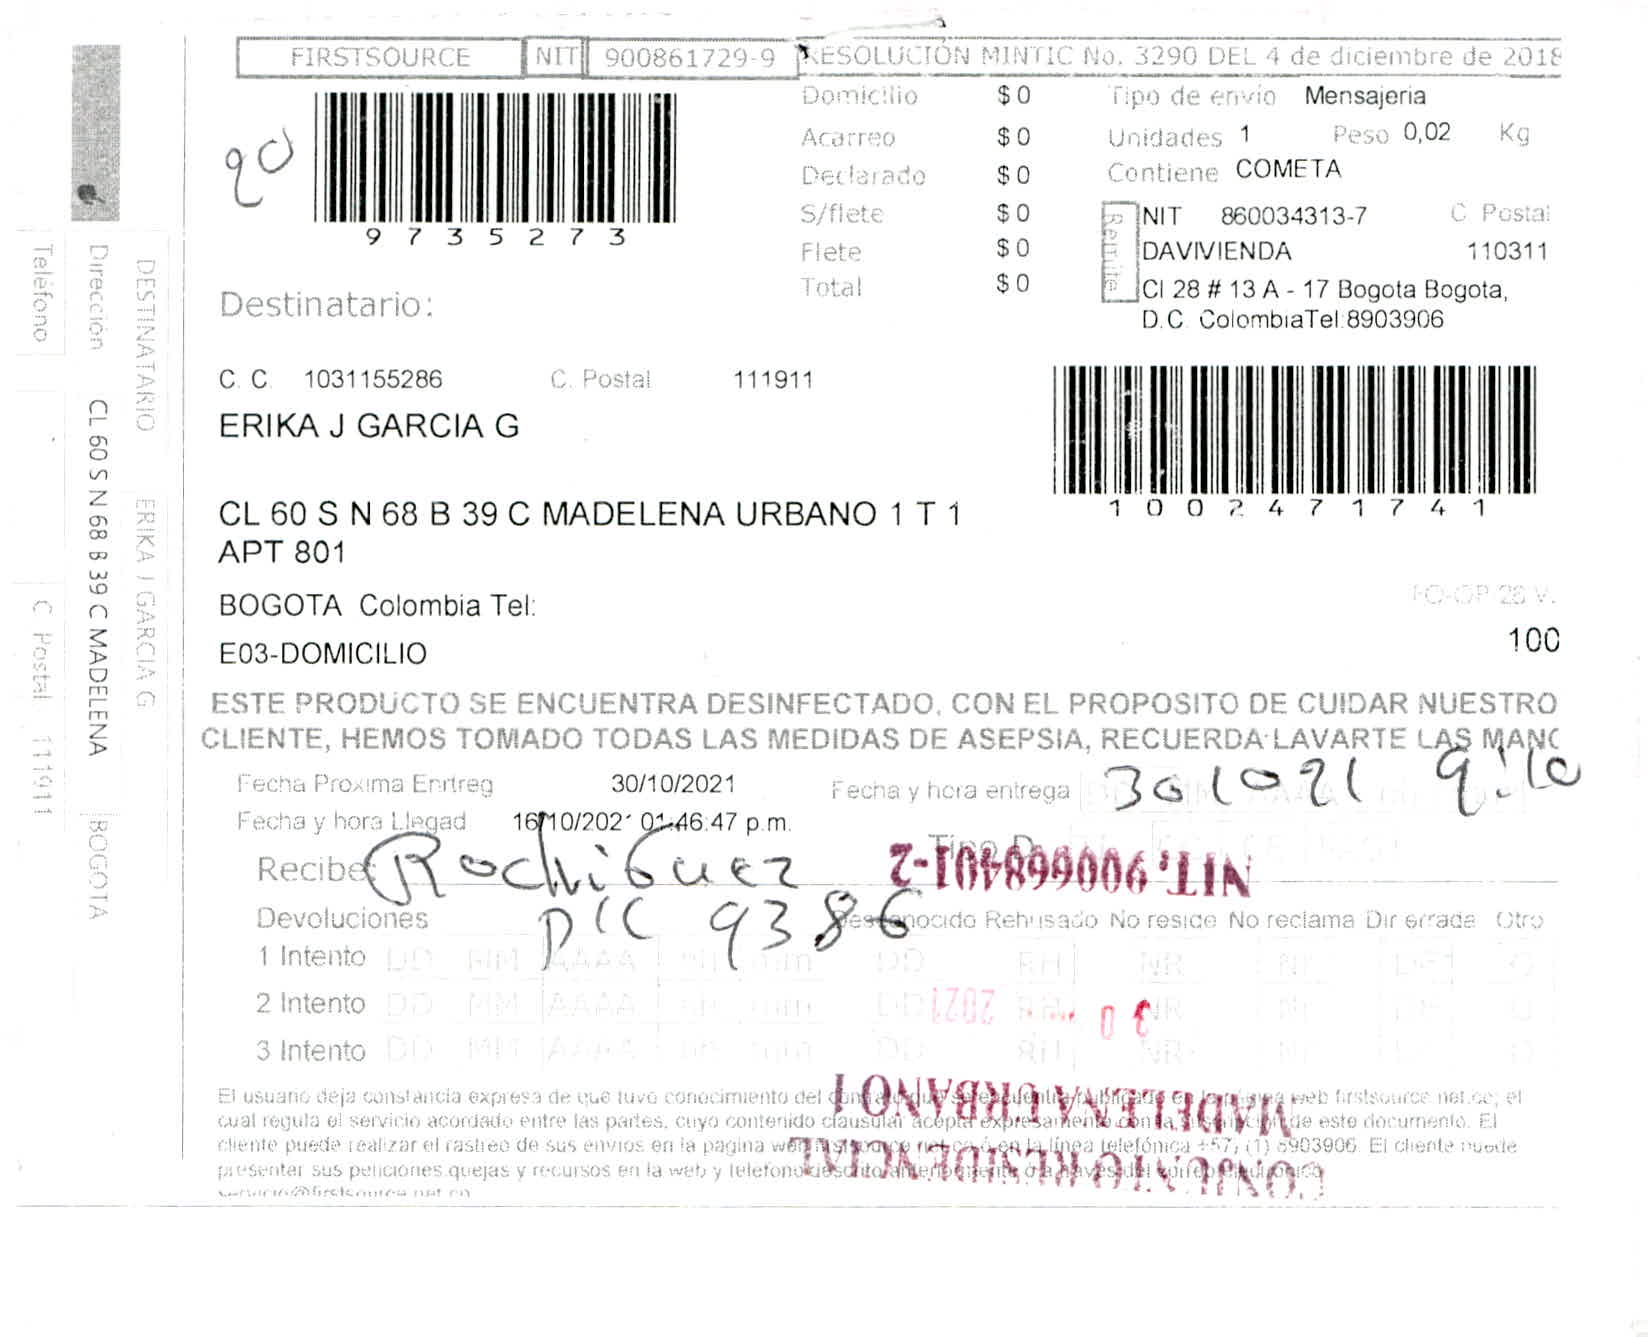 FIRSTSOURCE NIT 900861729-9 RESOLUCIÓN MINTIC No. 3290 DEL 4 de diciembre de 2018
90
9 7 3 5 2 7 3
Domicilio $ 0
Acarreo $ 0
Declarado $ 0
S/flete $ 0
Flete $ 0
Total $ 0
Tipo de envio Mensajeria
Unidades 1 Peso 0,02 Kg
Contiene COMETA
Remite
NIT 860034313-7 C Postal
DAVIVIENDA 110311
Cl 28 # 13 A - 17 Bogota Bogota,
D.C. ColombiaTel:8903906
Destinatario:
C. C. 1031155286 C. Postal 111911
ERIKA J GARCIA G
1 0 0 2 4 7 1 7 4 1
CL 60 S N 68 B 39 C MADELENA URBANO 1 T 1
APT 801
BOGOTA Colombia Tel:
FO-OP 28 V.
100
E03-DOMICILIO
ESTE PRODUCTO SE ENCUENTRA DESINFECTADO, CON EL PROPOSITO DE CUIDAR NUESTRO
CLIENTE, HEMOS TOMADO TODAS LAS MEDIDAS DE ASEPSIA, RECUERDA LAVARTE LAS MANO
Fecha Proxima Entreg 30/10/2021 Fecha y hora entrega 301021 9:10
Fecha y hora Llegad 16/10/2021 01:46:47 p.m.
Recibe: Rodriguez
NIT. 900668401-2
Devoluciones 9386 Desconocido Rehusado No reside No reclama Dir errada Otro
1 Intento DD MM AAAA hh mm DD RH NR NR DE O
2 Intento DD MM AAAA hh mm DD RH NR NR DE O
30 2021
3 Intento DD MM AAAA hh mm DD RH NR NR DE O
MADELENA URBANO 1
CONJUNTO RESIDENCIAL
El usuario deja constancia expresa de que tuvo conocimiento del contrato que se encuentra publicado en la pagina web firstsource.net.co; el
cual regula el servicio acordado entre las partes, cuyo contenido clausular acepta expresamente con la suscripción de este documento. El
cliente puede realizar el rastreo de sus envios en la pagina web firstsource.net.co ó en la línea telefónica +57, (1) 8903906. El cliente puede
presentar sus peticiones quejas y recursos en la web y telefono descrito anteriormente ó a través del correo electronico
servicio@firstsource.net.co
DESTINATARIO ERIKA J GARCIA G
Dirección CL 60 S N 68 B 39 C MADELENA BOGOTA
Teléfono C Postal 111911